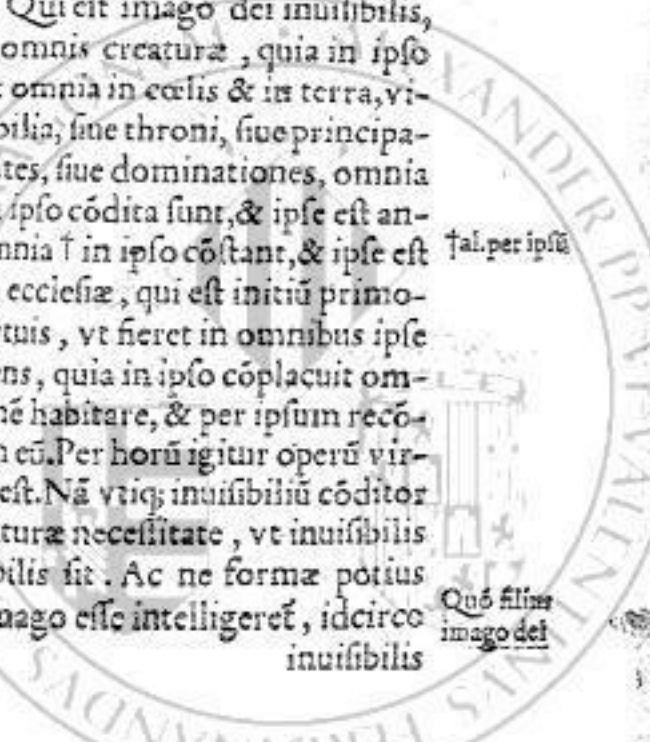 Qui est imago dei inuisibilis,
omnis creaturæ , quia in ipso
omnia in cœlis & in terra, vi-
bilia, siue throni, siue principa-
tes, siue dominationes, omnia
ipso cōdita sunt, & ipse est an-
nia † in ipso cōstant, & ipse est
†al. per ipsū
ecclesiæ , qui est initiū primo-
tuis , vt fieret in omnibus ipse
ns , quia in ipso cōplacuit om-
nē habitare, & per ipsum recō-
eū. Per horū igitur operū vir-
est. Nā vtiq; inuisibiliū cōditor
turæ necessitate , vt inuisibilis
bilis sit . Ac ne formæ potius
mago esse intelligeret̄ , idcirco
Quō filius
imago dei
inuisibilis